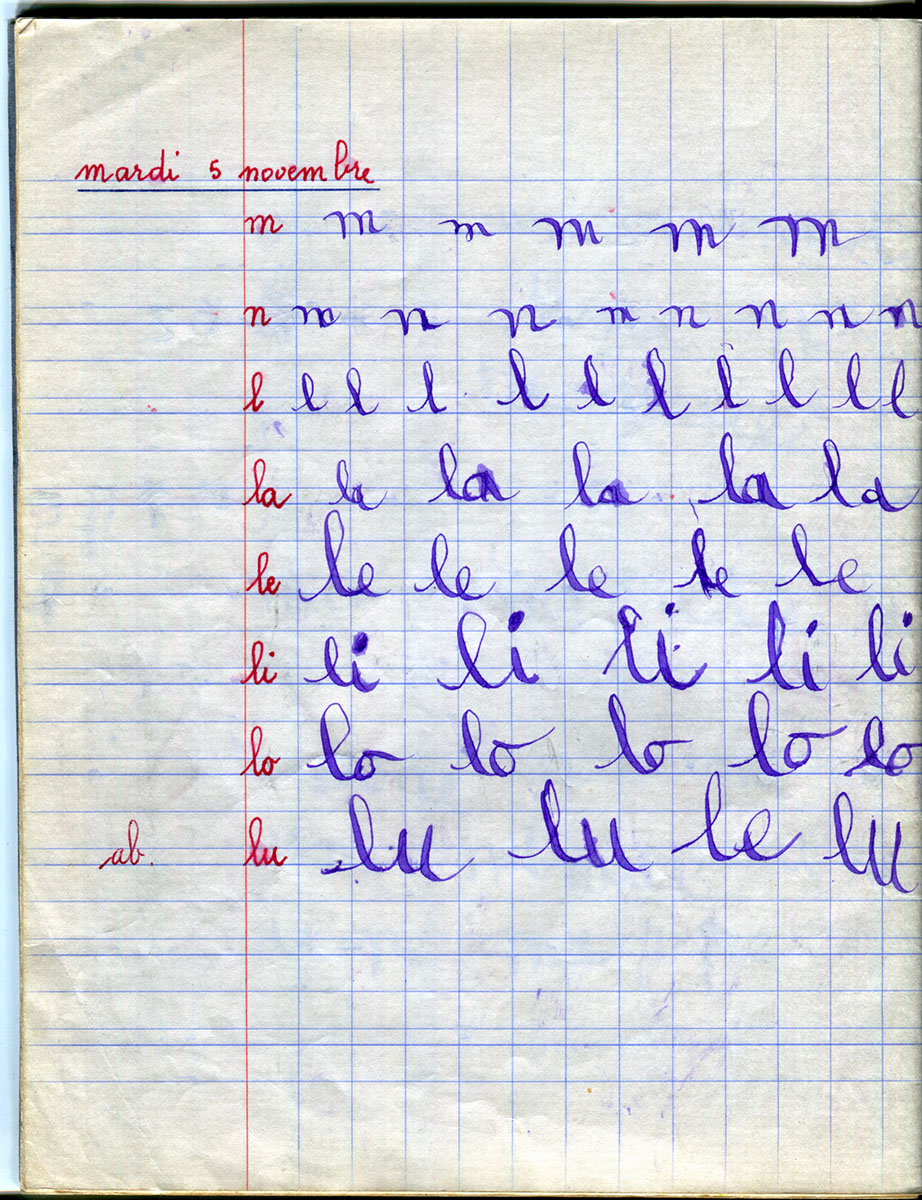 mardi 5 novembre
m m m m m m
n m n n m n n n n
l l l l l l l l l l l
la la la la la la
le le le le le le
li li li li li li
lo lo lo lo lo lo
ab. lu lu lu le lu